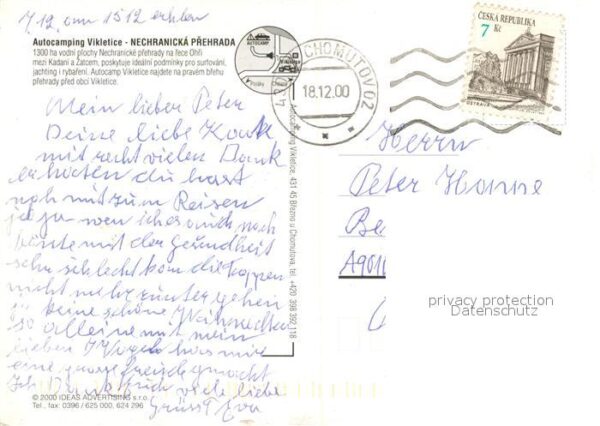 7.12. am 1512 erhlen
Autocamping Vikletice - NECHRANICKÁ PŘEHRADA
1300 ha vodní plochy Nechranické přehrady na řece Ohři
mezi Kadaní a Žatcem, poskytuje ideální podmínky pro surfování,
jachting i rybaření. Autocamp Vikletice najdete na pravém břehu
přehrady před obcí Vikletice.
AUTOCAMP
Vikletice
CHOMUTOV 02
18.12.00
ČESKÁ REPUBLIKA
7 Kč
OSTRAVA
Mein lieber Peter
Deine liebe Karte
mit recht vielen Dank
erhalten du hast
noch mit zum Reisen
ja ja wen ich es auch noch
könnte mit der gesundheit
sehr schlecht kom die Treppen
nicht mehr runter gehen
keine schöne Weihnachten
so alleine mit mein
lieben
eine grosse freude gemacht
Ich Danke viele liebe
Grüsst Eva
Autocamping Vikletice, 431 45 Březno u Chomutova, tel. +420 398 392 118
Herrn
Peter Hanne
Be
A901
privacy protection
Datenschutz
© 2000 IDEAS ADVERTISING s.r.o.
Tel., fax: 0396 / 625 000, 624 296